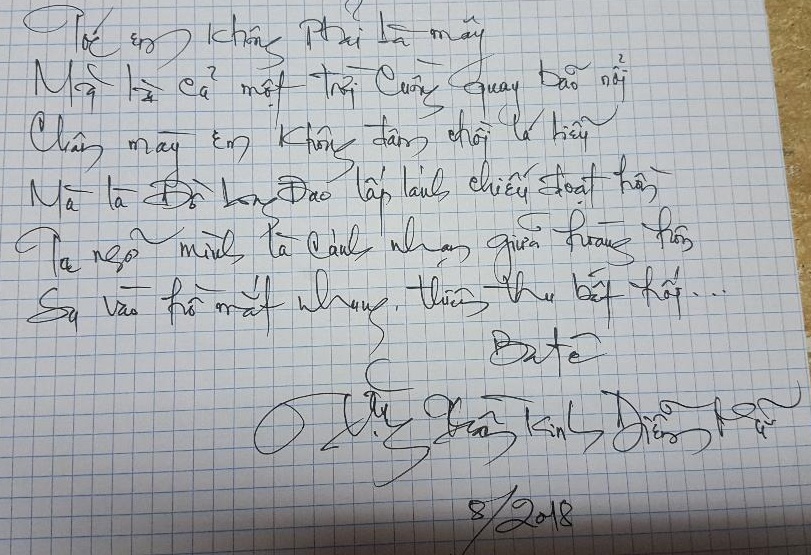 Tóc em không phải là mây
Mà là cả một trời cuồng quay bão nổi
Chân mày em không đâm chồi lá liễu
Mà là Đồ Long Đao lấp lánh chiếu đoạt hồn
Ta ngỡ mình là cánh nhạn giữa hoàng hôn
Sa vào hồ mắt nhung, thiên thu bất hối...
Batê
Kinh Diễm
8/2018